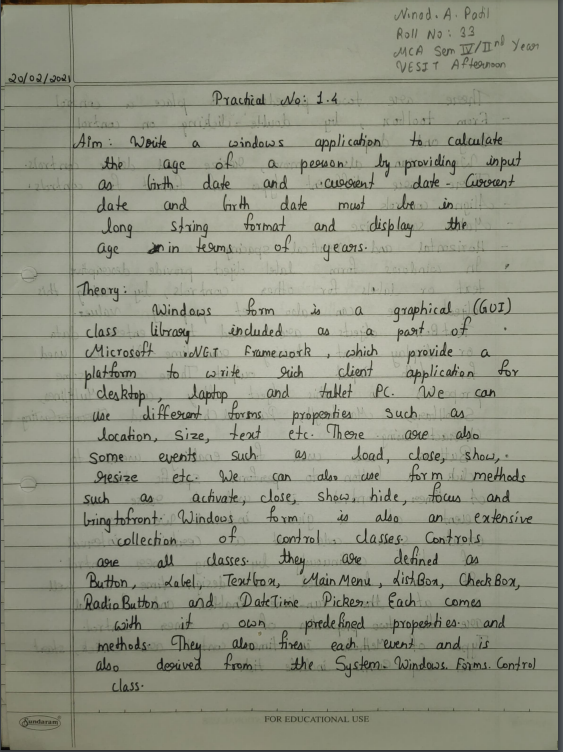 Ninad. A. Patil
Roll No: 33
MCA Sem IV/IInd Year
VESIT Afternoon
20/02/2021
Practical No: 1.4
Aim: Write a windows application to calculate
the age of a person by providing input
as birth date and current date. Current
date and birth date must be in
long string format and display the
age in terms of years.
Theory:
Windows form is a graphical (GUI)
class library included as a part of
Microsoft .NET Framework, which provide a
platform to write rich client application for
desktop, laptop and tablet PC. We can
use different forms properties such as
location, size, text etc. There are also
some events such as load, close, show,
resize etc. We can also use form methods
such as activate, close, show, hide, focus and
bringtofront. Windows form is also an extensive
collection of control classes. Controls
are all classes. they are defined as
Button, Label, Textbox, MainMenu, ListBox, CheckBox,
RadioButton and DateTime Picker. Each comes
with it own predefined properties and
methods. They also fires each event and is
also derived from the System. Windows. Forms. Control
class.
Sundaram
FOR EDUCATIONAL USE